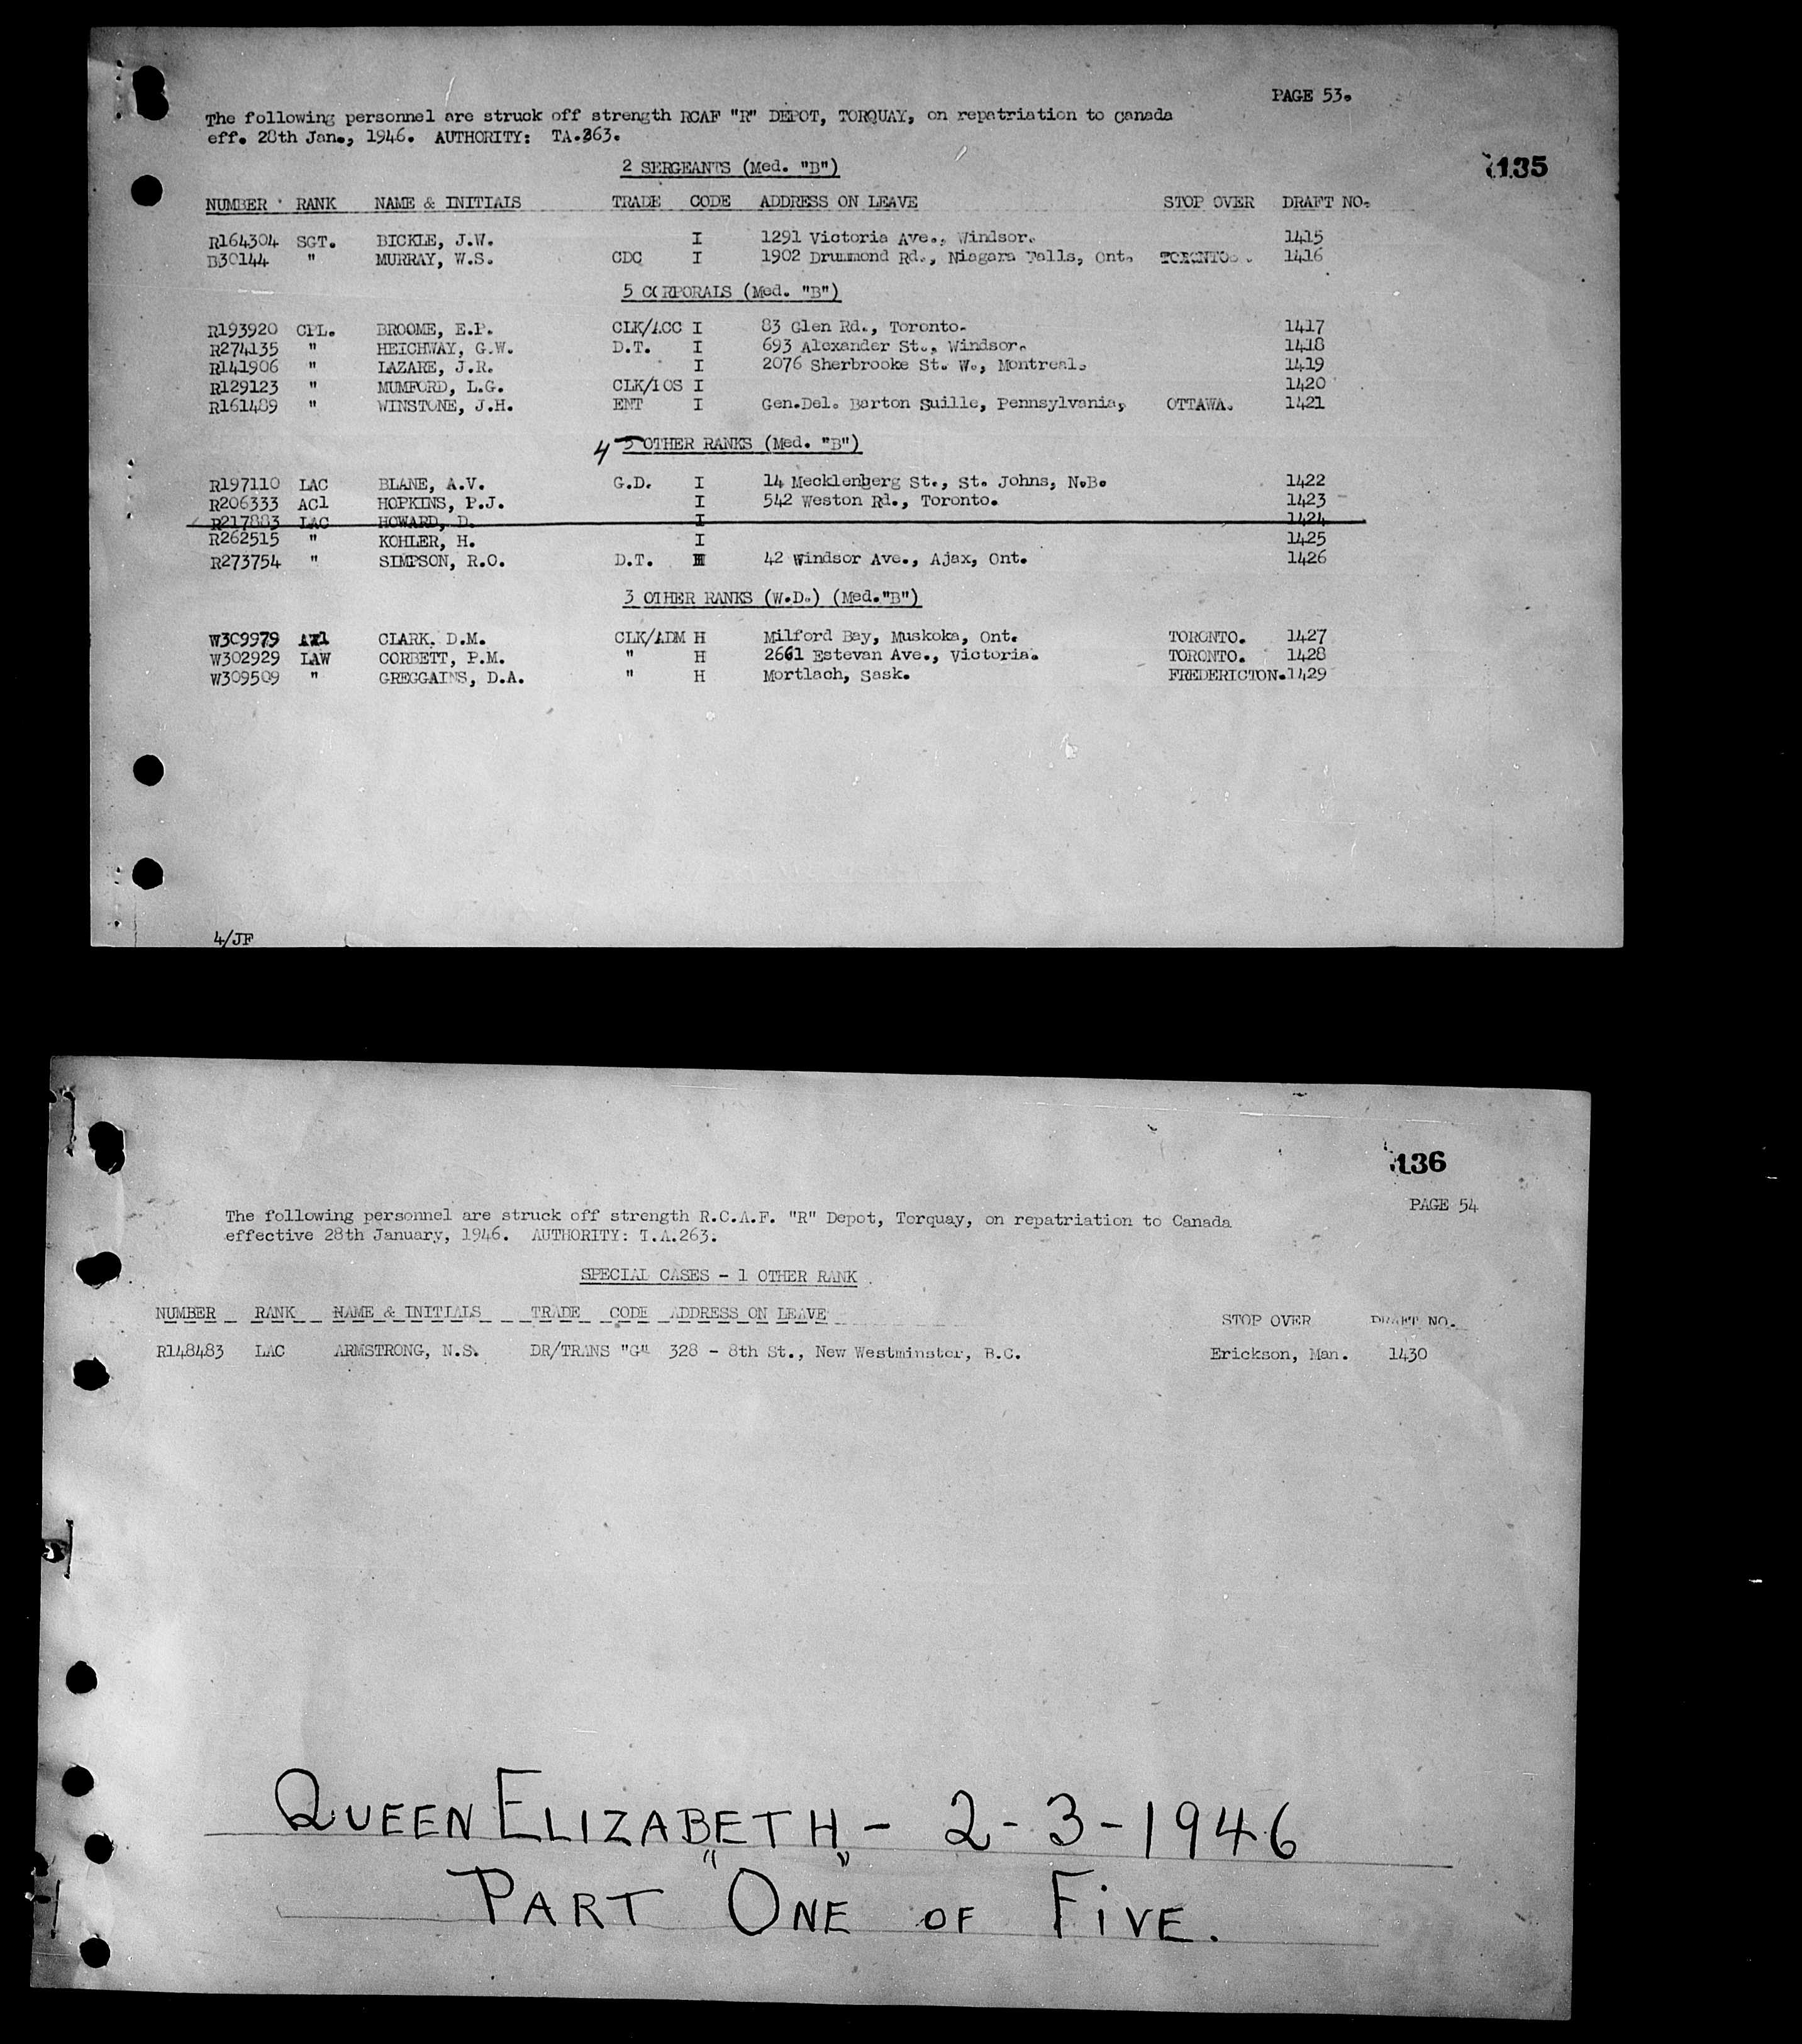 PAGE 53.
The following personnel are struck off strength RCAF "R" DEPOT, TORQUAY, on repatriation to Canada
eff. 28th Jan., 1946. AUTHORITY: TA.263.
135
2 SERGEANTS (Med. "B")
NUMBER RANK NAME & INITIALS TRADE CODE ADDRESS ON LEAVE STOP OVER DRAFT NO.
R164304 SGT. BICKLE, J.W. I 1291 Victoria Ave., Windsor. 1415
B30144 " MURRAY, W.S. CDC I 1902 Drummond Rd., Niagara Falls, Ont. TORONTO. 1416
5 CORPORALS (Med. "B")
R193920 CPL. BROOME, E.P. CLK/ACC I 83 Glen Rd., Toronto. 1417
R274135 " HEICHWAY, G.W. D.T. I 693 Alexander St., Windsor. 1418
R141906 " LAZARE, J.R. I 2076 Sherbrooke St. W., Montreal. 1419
R129123 " MUMFORD, L.G. CLK/POS I 1420
R161489 " WINSTONE, J.H. ENT I Gen.Del. Barton Suille, Pennsylvania, OTTAWA. 1421
4 5 OTHER RANKS (Med. "B")
R197110 LAC BLANE, A.V. G.D. I 14 Mecklenberg St., St. Johns, N.B. 1422
R206333 AC1 HOPKINS, P.J. I 542 Weston Rd., Toronto. 1423
R217883 LAC HOWARD, D. I 1424
R262515 " KOHLER, H. I 1425
R273754 " SIMPSON, R.O. D.T. H 42 Windsor Ave., Ajax, Ont. 1426
3 OTHER RANKS (W.D.) (Med."B")
W309979 AW1 CLARK. D.M. CLK/ADM H Milford Bay, Muskoka, Ont. TORONTO. 1427
W302929 LAW CORBETT, P.M. " H 2661 Estevan Ave., Victoria. TORONTO. 1428
W309509 " GREGGAINS, D.A. " H Mortlach, Sask. FREDERICTON. 1429
4/JF
136
PAGE 54
The following personnel are struck off strength R.C.A.F. "R" Depot, Torquay, on repatriation to Canada
effective 28th January, 1946. AUTHORITY: T.A.263.
SPECIAL CASES - 1 OTHER RANK
NUMBER RANK NAME & INITIALS TRADE CODE ADDRESS ON LEAVE STOP OVER DRAFT NO.
R148483 LAC ARMSTRONG, N.S. DR/TRANS "G" 328 - 8th St., New Westminster, B.C. Erickson, Man. 1430
QUEEN ELIZABETH - 2-3-1946
PART "ONE" OF FIVE.